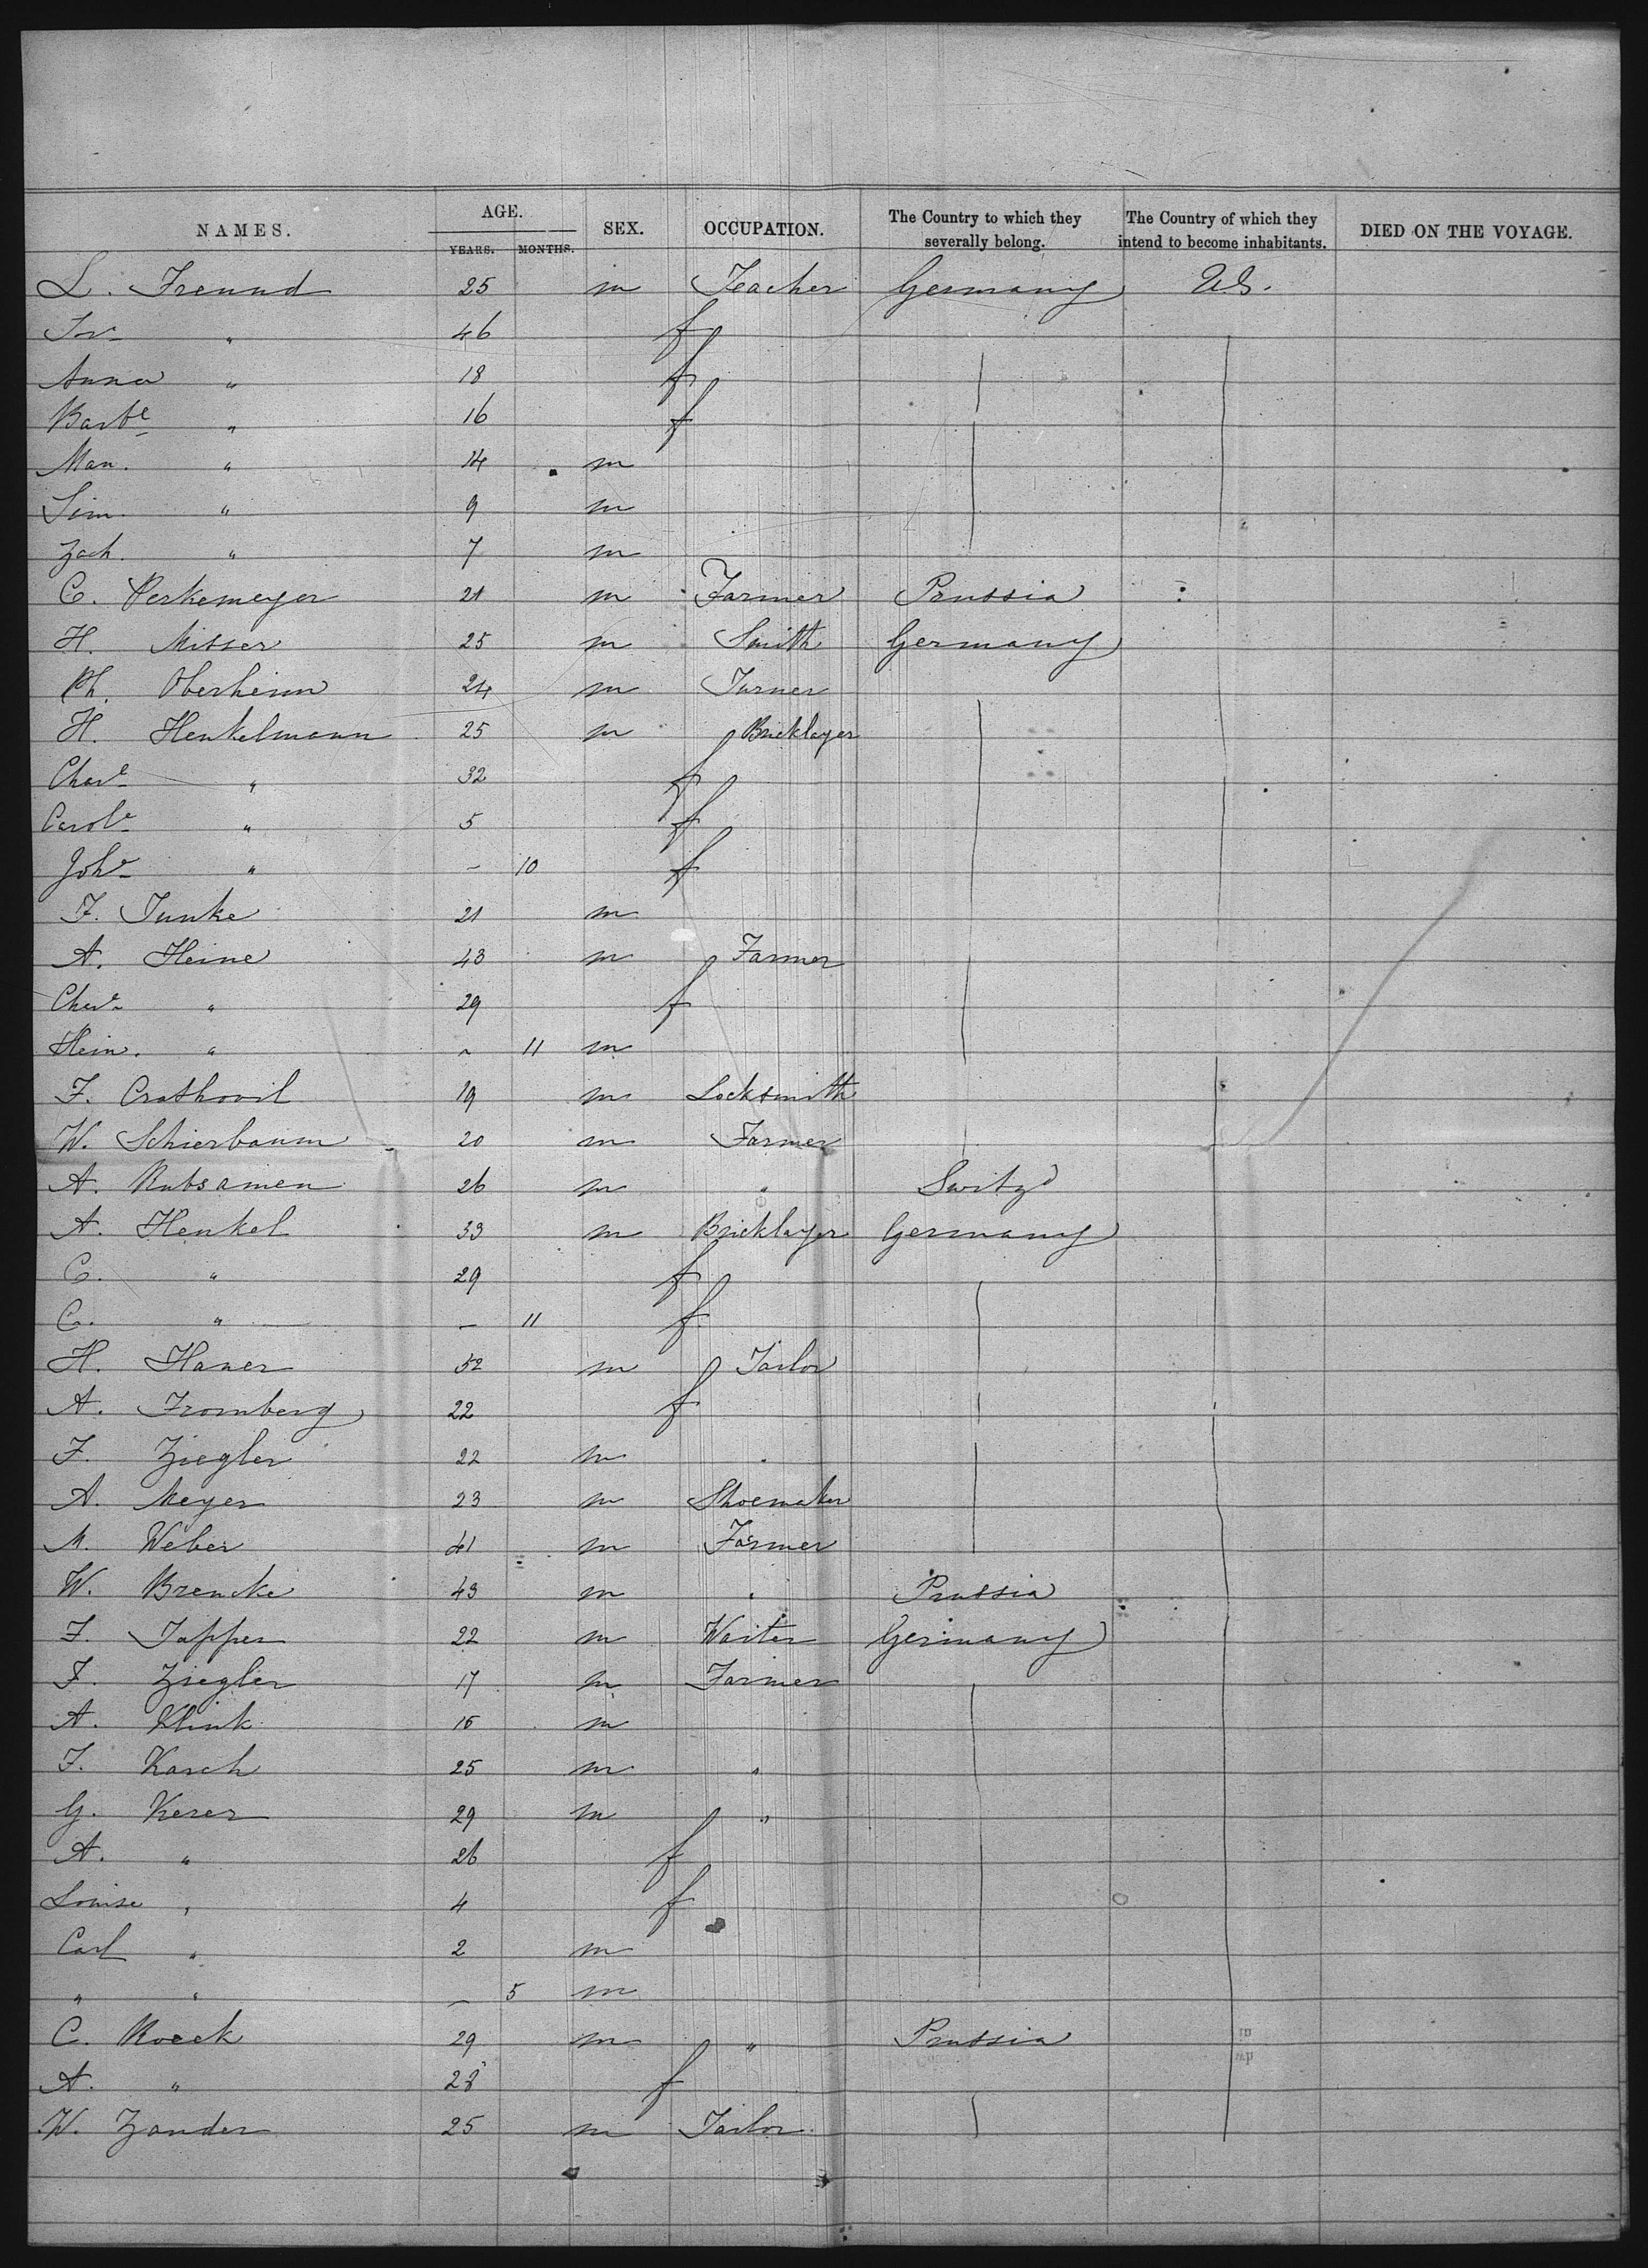 NAMES. AGE. YEARS. MONTHS. SEX. OCCUPATION. The Country to which they severally belong. The Country of which they intend to become inhabitants. DIED ON THE VOYAGE.
L. Freund 25 m Teacher Germany U.S.
" 46 f
Anna " 18 f
Barbe " 16 f
Man. " 14 m
Sim. " 9 m
Zach. " 7 m
C. Perkemeyer 21 m Farmer Prussia
H. Misser 25 m Smith Germany
Ph. Oberheim 24 m Turner
H. Henkelmann 25 m Bricklayer
Chare " 32 f
Carole " 5 f
Johe " – 10 f
F. Junke 21 m
A. Heine 43 m Farmer
Chare " 29 f
Hein. " – 11 m
F. Crathovil 19 m Locksmith
W. Schierbaum 20 m Farmer
A. Rubsamen 26 m " Switzd
A. Henkel 33 m Bricklayer Germany
C. " 29 f
C. " – 11 f
H. Haner 52 m Tailor
A. Fromberg 22 f
F. Ziegler 22 m "
A. Meyer 23 m Shoemaker
M. Weber 41 m Farmer
W. Brencke 43 m " Prussia
F. Tapper 22 m Waiter Germany
F. Ziegler 17 m Farmer
A. Klink 16 m
F. Karch 25 m "
G. Kerer 29 m "
A. " 26 f
Louise " 4 f
Carl " 2 m
" " – 5 m
C. Roeck 29 m " Prussia
A. " 28 f
W. Zander 25 m Tailor